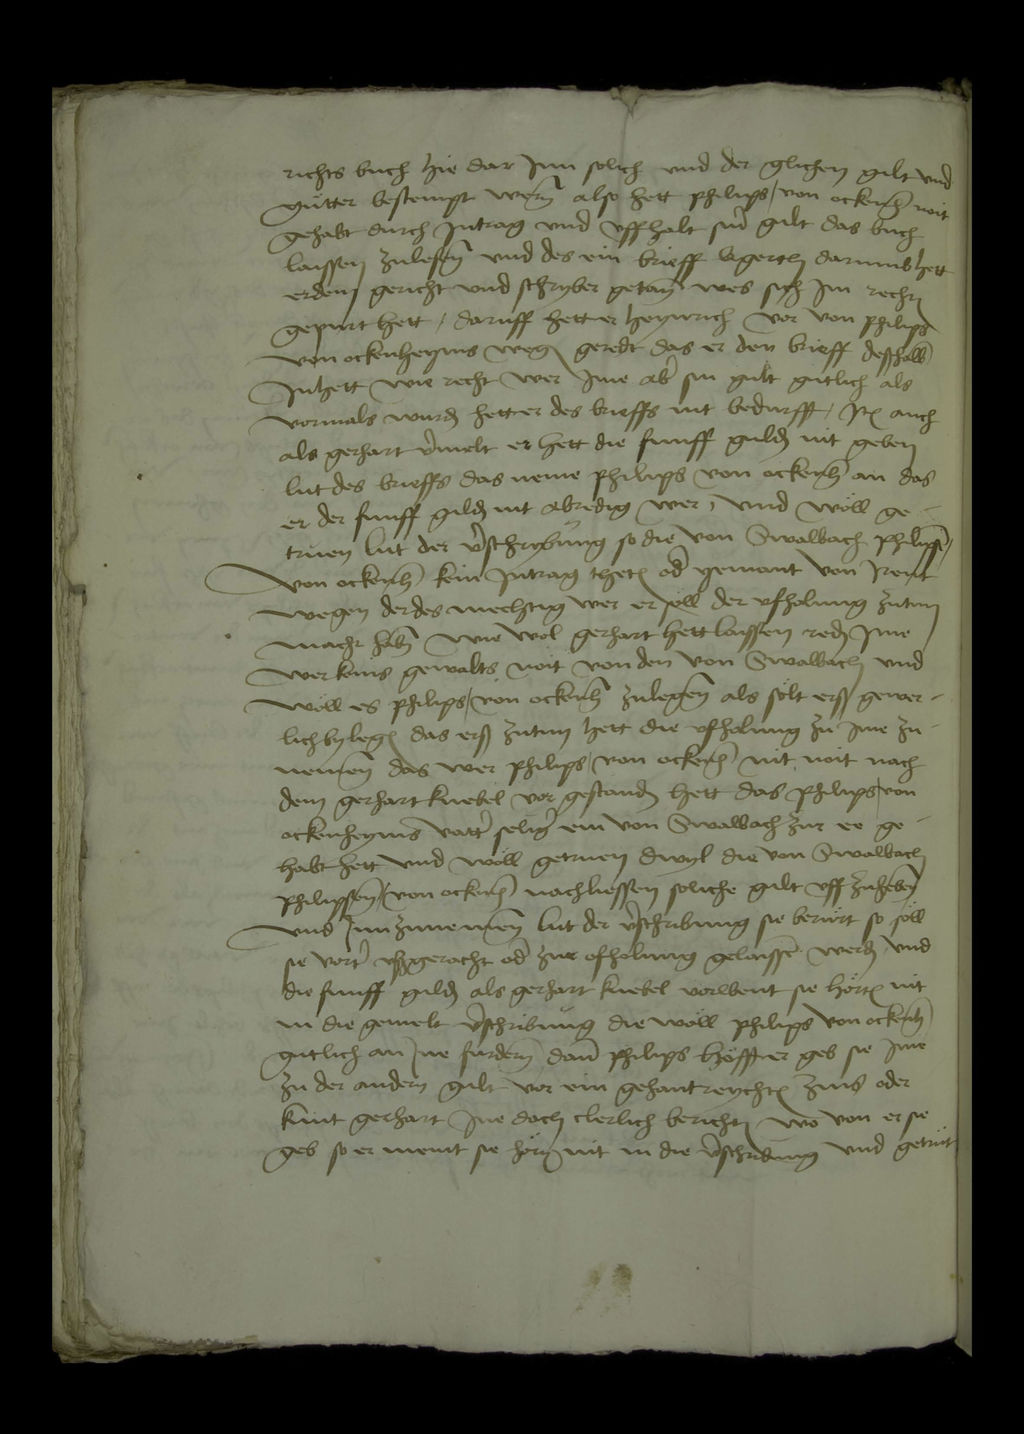 richts buch hie dar Inn solich und der glichen gilt und
gütter bestempt wern also hett philips von ockenh noit
gehabt durch Intrag und uffhalt sin gilt das buch
laissen zulesen und des ein brieff begerth darumb hett
erdem gericht und schryber getan wes sich Im recht
gepurt hett / daruff hett er heynrich vor von philips
von ockenheyms wegen geredt das er den brieff deshalb
Inhett wie recht wer Ime ab sin gult gutlich als
vormals wurd hett er des brieffs nit bedurfft / It auch
als gerhart vmelt er hett die funff guld nit geben
lut des brieffs das neme philips von ockenh an das
er der funff guld nit abredig wer / und woll ge-
truen lut der vschrybung so die von Swalbach philipsen
von ockenh kein Intrag thet od yemant von Irent
wegen der des mechtig wer er soll der ufholung zutun
macht haben wie wol gerhart hett laissen red Ime
wer keins gewalts noit von den von Swalbach und
wöll es philips von ockenh zulegen als solt erss gewer-
lich bylegen das erss zutun hett die ufholung zu Ime zu-
nemen das wer philips von ockenh nit noit nach
dem gerhart knebel vor gestanden hett das philips von
ockenheyms vatter seliger ein von Swalbach zur ee ge-
habt hett und wöll getruen dwyl die von Swalbach
philipsen von ockenh nachliessen soliche gilt uff zuheben
und Inn zunemen lut der vschribung sie berürt so söll
sie vort ussgeracht od zur ofholung gelaissen werd und
die funff guld als gerhart knebel vorwent sie hört nit
in die gemelt vschribung die wöll philips von ockenh
gutlich an Ine furdern dan philips hofft er geb sie Ime
zu der andern gilt vor ein gehantreycht zins oder
kunt gerhart Ine doch clerlich bericht wo von er sie
geb so er meint sie hör nit in die vschribung und getrüt